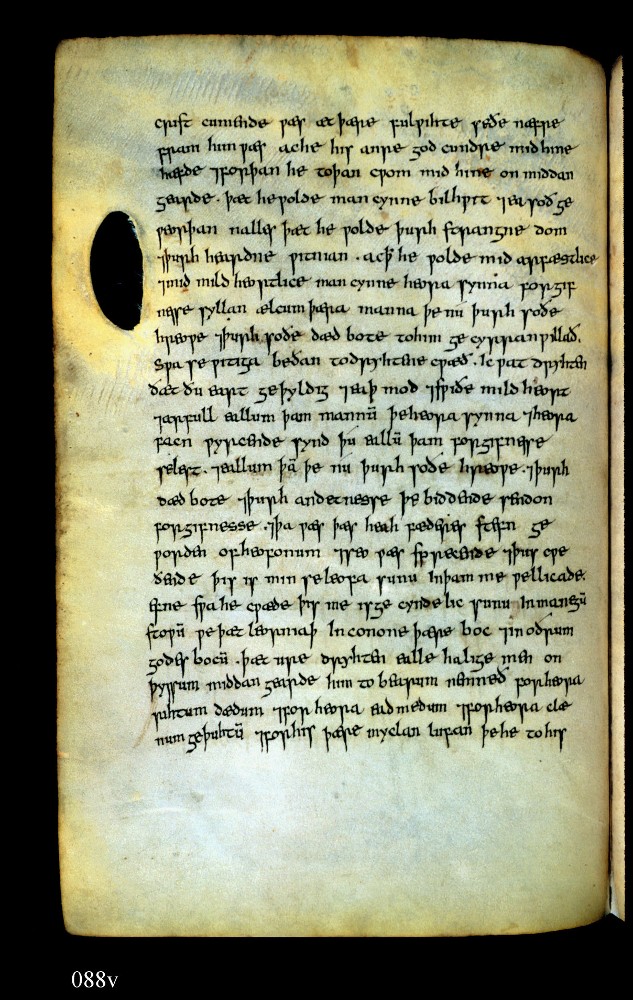 crist cumende ƿæs æt þære fulƿihte seðe næfre
fram him ƿæs ac he his anre god cundre mid hine
hæfde ⁊forþan he to þan cƿom mid hine on middan
gearde. þæt he ƿolde man cynne bilhƿit ⁊ea mod ge
ƿeorþan nalles þæt he ƿolde þurh strangne dom
⁊þurh heardne ƿitnian. ac þ he ƿolde mid arfæstlice
⁊mid mild heortlice man cynne heora synna forgif
nesse syllan ælcum þara manna þe nu þurh soðe
hreoƿe ⁊þurh soðe dæd bote to him ge cyrran ƿillað.
sƿa se ƿitiga beðan to dryhtene cƿæð. Ic ƿat dryhten
ðæt ðu eart geþyldig ⁊eaþ mod ⁊sƿiðe mild heort
⁊arfull eallum þam mannū þe heora synna ⁊heora
facn ƿyrcende synd þu eallū þam forgifnesse
selest. ⁊eallum þā þe nu þurh soðe hreoƿe. ⁊þurh
dæd bote ⁊þurh andetnesse þe biddende sendon
forgifnesse. ⁊þa ƿæs þæs heah fæderes stefn ge
ƿorden of heofonum ⁊seo ƿæs sprecende ⁊þus cƿe
dende þis is min se leofa sunu In þam me ƿellicade.
efne sƿa he cƿæde þis me is ge cynde lic sunu In manegū
stoƿū ƿe þæt leorniaþ In conone þære boc ⁊in oðrum
godes bocū. þæt ure dryhten ealle halige men on
þyssum middan gearde him to bearum nemneð for heora
rihtum dædum ⁊for heora eadmedum ⁊for heora clæ
num geþohtū ⁊for his þære myclan lufan þe he to his
088v